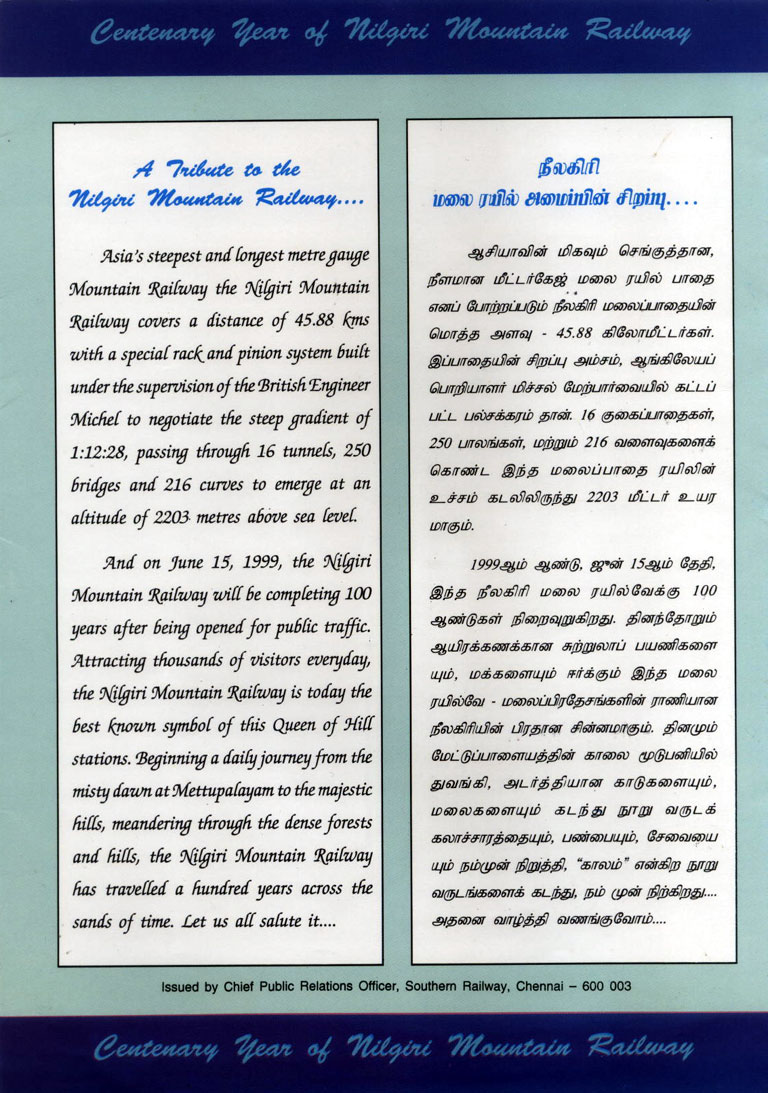 Centenary Year of Nilgiri Mountain Railway
A Tribute to the
Nilgiri Mountain Railway....
Asia's steepest and longest metre gauge
Mountain Railway the Nilgiri Mountain
Railway covers a distance of 45.88 kms
with a special rack and pinion system built
under the supervision of the British Engineer
Michel to negotiate the steep gradient of
1:12:28, passing through 16 tunnels, 250
bridges and 216 curves to emerge at an
altitude of 2203 metres above sea level.
And on June 15, 1999, the Nilgiri
Mountain Railway will be completing 100
years after being opened for public traffic.
Attracting thousands of visitors everyday,
the Nilgiri Mountain Railway is today the
best known symbol of this Queen of Hill
stations. Beginning a daily journey from the
misty dawn at Mettupalayam to the majestic
hills, meandering through the dense forests
and hills, the Nilgiri Mountain Railway
has travelled a hundred years across the
sands of time. Let us all salute it....
நீலகிரி
மலை ரயில் அமைப்பின் சிறப்பு....
ஆசியாவின் மிகவும் செங்குத்தான,
நீளமான மீட்டர்கேஜ் மலை ரயில் பாதை
எனப் போற்றப்படும் நீலகிரி மலைப்பாதையின்
மொத்த அளவு - 45.88 கிலோமீட்டர்கள்.
இப்பாதையின் சிறப்பு அம்சம், ஆங்கிலேயப்
பொறியாளர் மிச்சல் மேற்பார்வையில் கட்டப்
பட்ட பல்சக்கரம் தான். 16 குகைப்பாதைகள்,
250 பாலங்கள், மற்றும் 216 வளைவுகளைக்
கொண்ட இந்த மலைப்பாதை ரயிலின்
உச்சம் கடலிலிருந்து 2203 மீட்டர் உயர
மாகும்.
1999ஆம் ஆண்டு, ஜுன் 15ஆம் தேதி,
இந்த நீலகிரி மலை ரயில்வேக்கு 100
ஆண்டுகள் நிறைவுறுகிறது. தினந்தோறும்
ஆயிரக்கணக்கான சுற்றுலாப் பயணிகளை
யும், மக்களையும் ஈர்க்கும் இந்த மலை
ரயில்வே - மலைப்பிரதேசங்களின் ராணியான
நீலகிரியின் பிரதான சின்னமாகும். தினமும்
மேட்டுப்பாளையத்தின் காலை மூடுபனியில்
துவங்கி, அடர்த்தியான காடுகளையும்,
மலைகளையும் கடந்து நூறு வருடக்
கலாச்சாரத்தையும், பண்பையும், சேவையை
யும் நம்முன் நிறுத்தி, "காலம்" என்கிற நூறு
வருடங்களைக் கடந்து, நம் முன் நிற்கிறது....
அதனை வாழ்த்தி வணங்குவோம்....
Issued by Chief Public Relations Officer, Southern Railway, Chennai – 600 003
Centenary Year of Nilgiri Mountain Railway